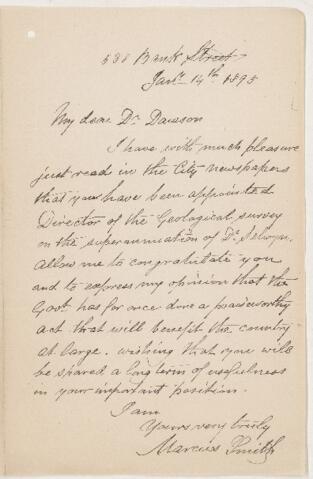 538 Bank Street
Jany. 14th 1895
My dear Dr Dawson
I have with much pleasure
just read in the City newspapers
that you have been appointed
Director of the Geological survey
on the superannuation of Dr Selwyn.
allow me to congratulate you
and to express my opinion that the
Govt. has for once done a praiseworthy
act that will benefit the country
at large. wishing that you will
be spared a long term of usefulness
in your important position.
I am
Yours very truly
Marcus Smith